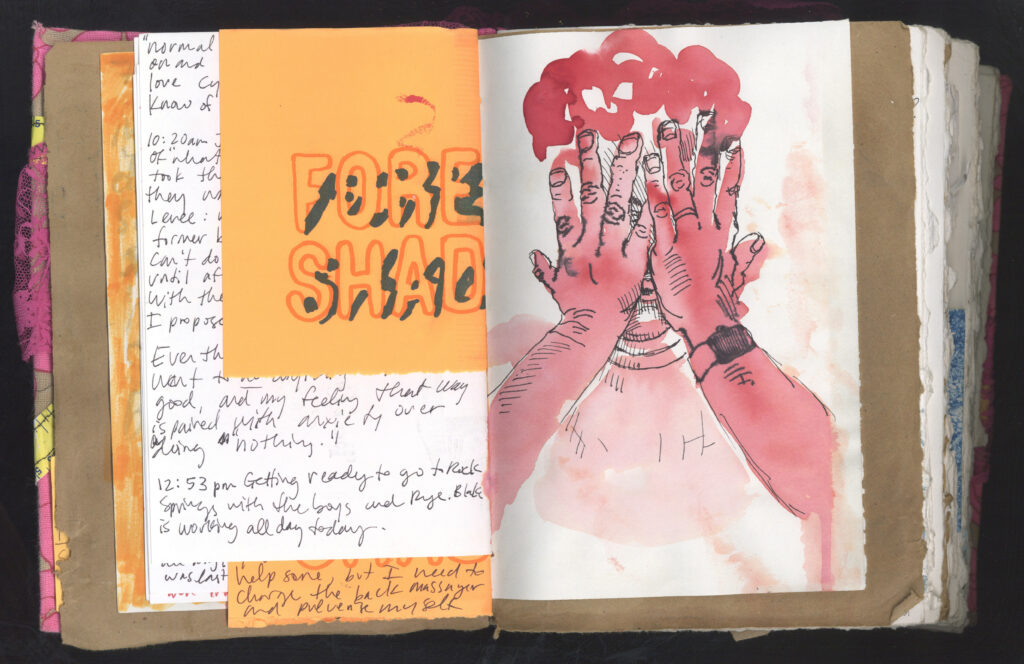 "normal
on and
love Cy
know of
10:20am J
of "what
took th
they w
Levee:
former b
can't do
until af
with the
I propose
FORE
SHAD
Even th
want to be anything
good, and my feeling that way
is paired with anxiety over
doing "nothing."
12:53 pm Getting ready to go to Rock
Springs with the boys and Rye. Blake
is working all day today.
was last
help some, but I need to
charge the back massager
and prevent myself